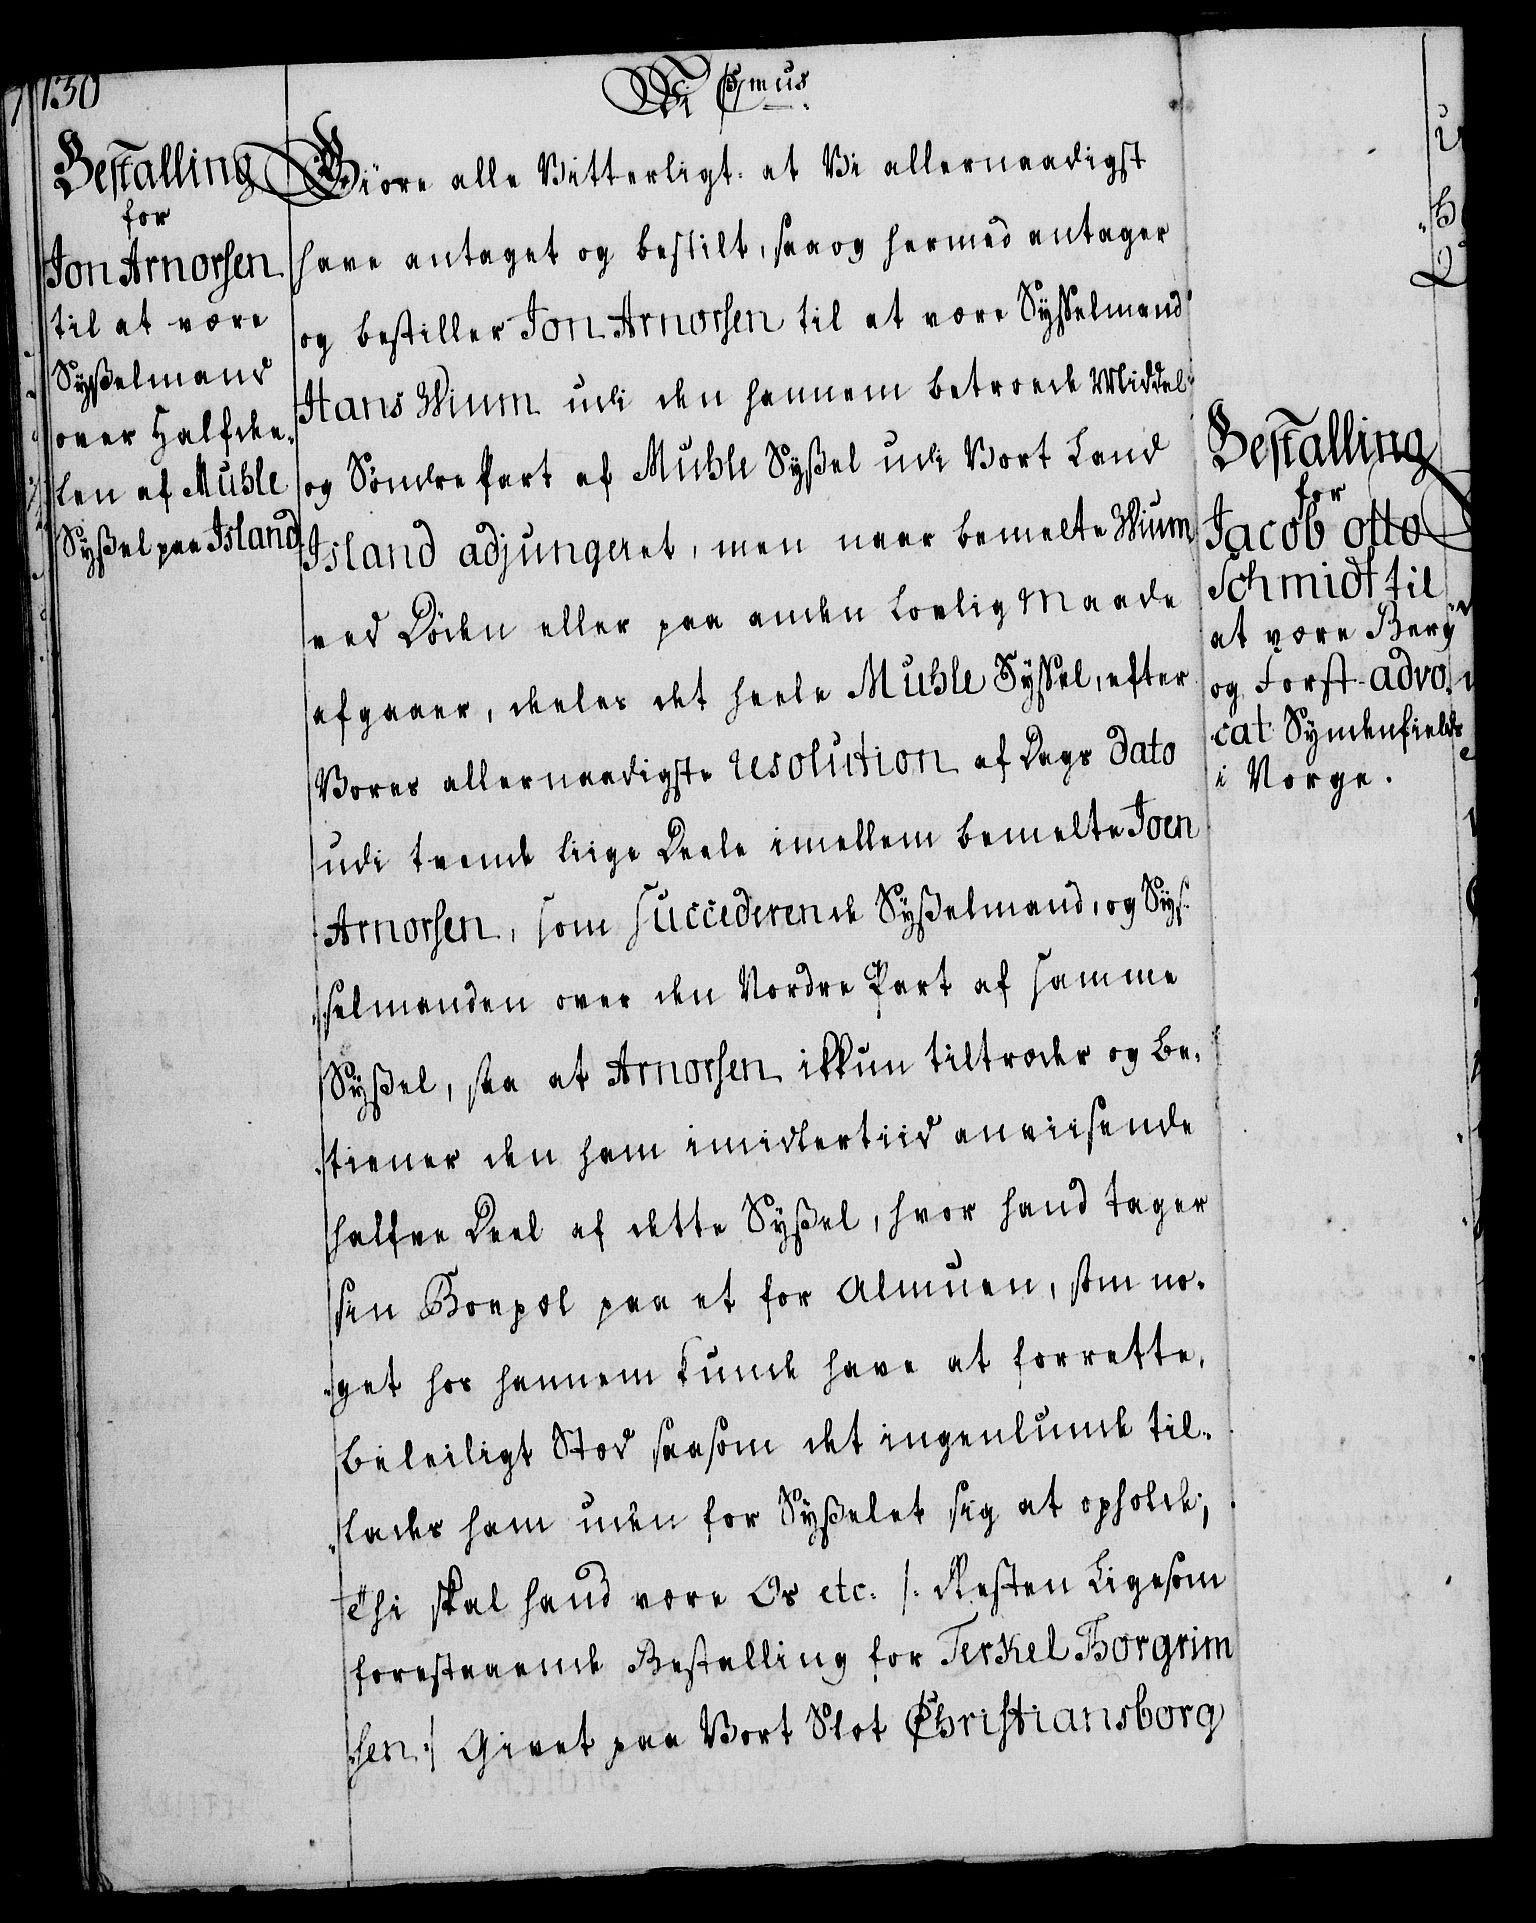 130
Vi C 7mus
Bestalling
for
Jon Arnorsen
til at være
Syßelmand
over Halfde-
len af Muhle
Syßel paa Island
Giöre alle Vitterligt. at Vi allernaadigst
have antaget og bestilt, saa og hermed antager
og bestiller Jon Arnorsen til at være Sysselmand
Hans Wium udi den hannem betroede Middel-
og Söndre Part af Muhle Syßel udi Vort Land
Island adjungeret, men naar bemelte Wium
ved Döden eller paa anden lovlig Maade
afgaaer, deeles det heele Muhle Syssel, efter
Vores allernaadigste resolution af Dags dato
udi tvende liige Deele imellem bemelte Joen
Arnorsen, som succederende Syßelmand, og Sys-
selmanden over den Nordre Part af samme
Syßel, saa at Arnorsen ikkun tiltræder og be-
tiener den ham imidlertiid anviisende
halfve Deel af dette Syßel, hvor hand tager
sin Boepæl paa et for Almuen, som no-
get hos hannem kunde have at forrette,
beleiligt Stæd saasom det ingenlunde til-
lades ham uden for Syßelet sig at opholde;
Thi skal hand være Os etc. /: Resten Ligesom
forestaaende Bestalling for Terkel Thorgrim
sen :/ Givet paa Vort Slot Christiansborg
Bestalling
for
Jacob Otto
Schmidt til
at være Berg
og Forst-advo-
cat Syndenfields
i Norge.